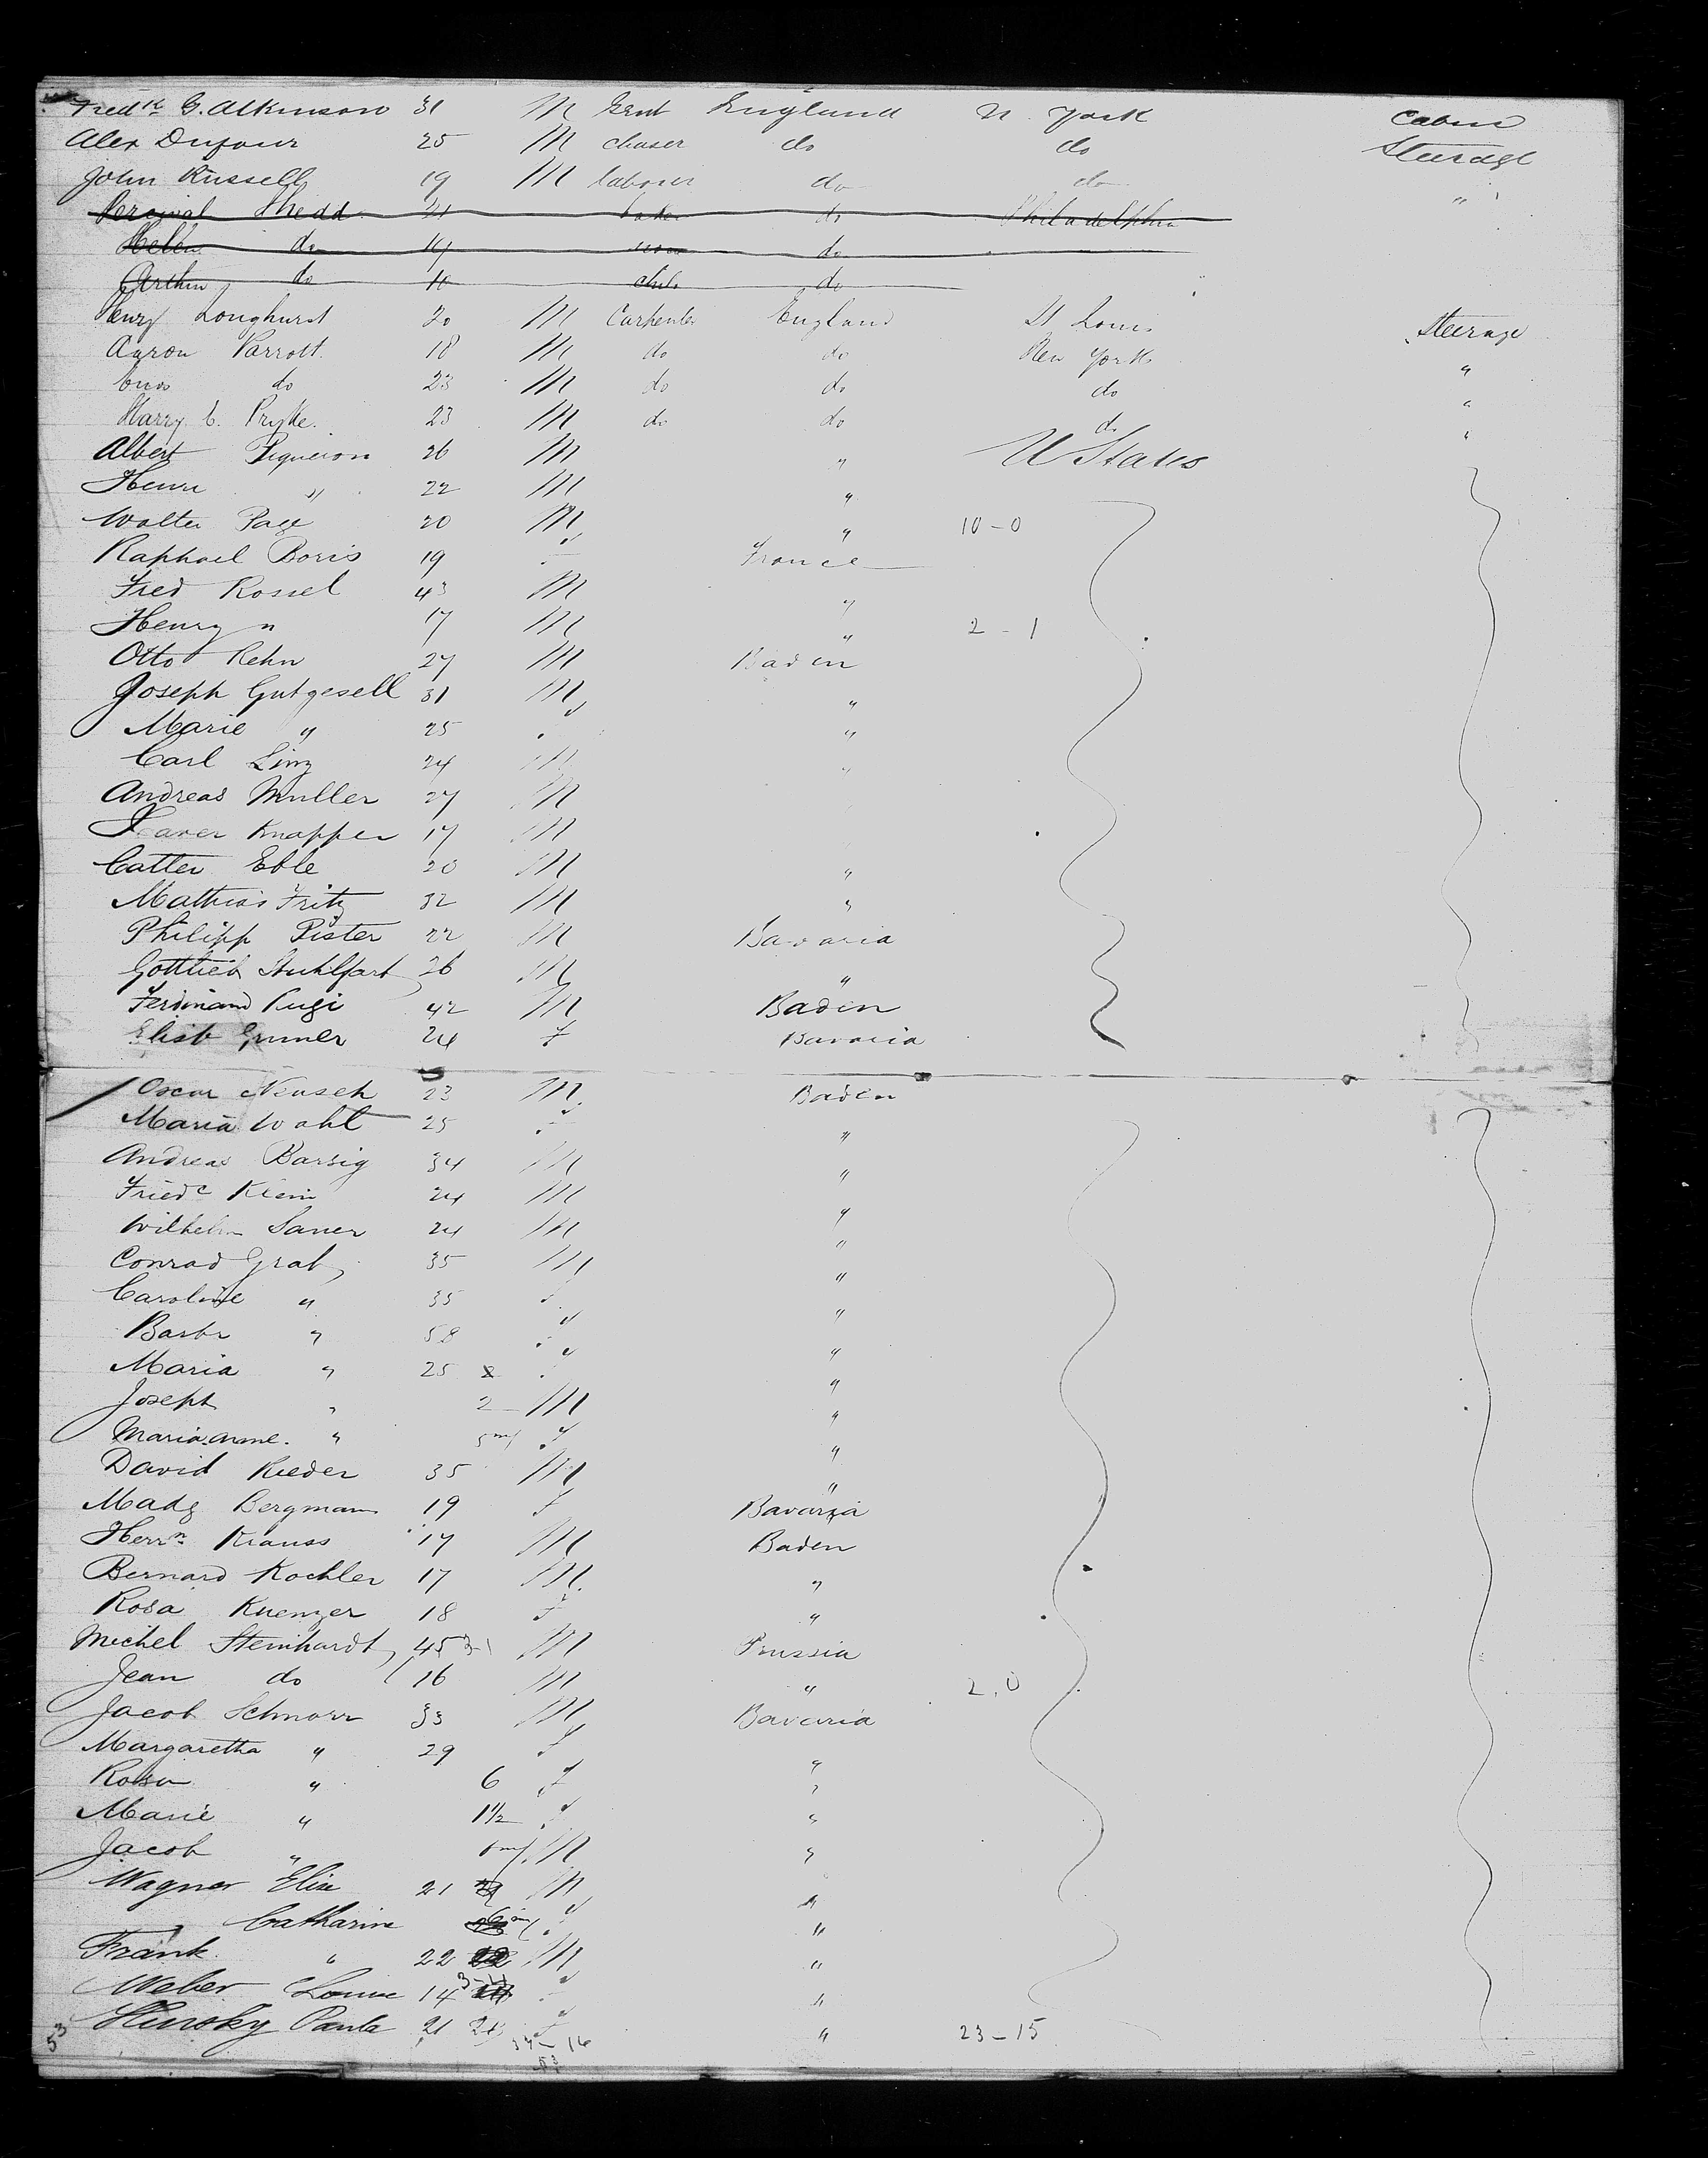 Fredk G. Atkinson 31 M Gent England N. York Cabin
Alex Dufour 25 M chaser do do Steerage
John Russell 19 M laborer do do "
Percival Shedd 21 baker do Philadelphia
Helen do 19 do
Arthur do 10 child do
Henry Longhurst 20 M Carpenter England St Louis Steerage
Aaron Parrott 18 M do do New York "
do 23 M do do do "
Harry C. Pryke 23 M do do do "
Albert Piqueron 26 M " U States
Henri " 22 M "
Walter Page 20 M " 10-0
Raphael Boris 19 f France
Fred Rossel 43 M "
Henry " 17 M " 2-1
Otto Rehn 27 M Baden
Joseph Gutgesell 31 M "
Marie " 25 f "
Carl Linz 24 M "
Andreas Muller 27 M
Xaver Knapper 17 M
Catter Eble 20 M "
Mathias Fritz 32 M "
Philipp Pister 22 M Bavaria
Gottlieb Stuhlfart 26 M "
Ferdinand Rugi 42 M Baden
Elisb Gruner 24 f Bavaria
Oscar Neusch 23 M Baden
Maria Wahl 25 f "
Andreas Barsig 34 M "
Friedc Klein 24 M "
Wilhelm Sauer 24 M "
Conrad Graf 35 M "
Caroline " 35 f "
Barbr " 58 f "
Maria " 25 f "
Joseph " 2 M "
Maria anne. " 5 m/ f "
David Rieder 35 M "
Madg Bergmann 19 f Bavaria
Herrn Krauss 17 M Baden
Bernard Kochler 17 M "
Rosa Kuenzer 18 f "
Michel Steinhardt 45 3-1 M Prussia
Jean do 16 M " 2.0
Jacob Schnorr 33 M Bavaria
Margaretha " 29 f "
Rosa " 6 f "
Marie " 1 1/2 f "
Jacob " 6 m/ M "
Wagner Elise 21 M "
Catharine 6 m/ f "
Frank " 22 M "
Weber Louise 14 3-11 f "
Hursky Paula 21 21 f " 23-15
53 37-16
53